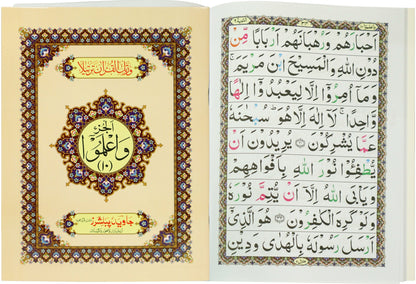 ورتل القرآن ترتيلا
الجزء
واعلموا
(١٠)
جاوید پبلشرز
اَحْبَارَهُمْ وَرُهْبَانَهُمْ اَرْبَابًا مِّنْ
دُوْنِ اللّٰهِ وَالْمَسِيْحَ ابْنَ مَرْيَمَ ۚ
وَمَآ اُمِرُوْٓا اِلَّا لِيَعْبُدُوْٓا اِلٰهًا
وَّاحِدًا ۚ لَآ اِلٰهَ اِلَّا هُوَ ؕ سُبْحٰنَهٗ
عَمَّا يُشْرِكُوْنَ ۝ يُرِيْدُوْنَ اَنْ
يُّطْفِـُٔوْا نُوْرَ اللّٰهِ بِاَفْوَاهِهِمْ
وَيَاْبَى اللّٰهُ اِلَّآ اَنْ يُّتِمَّ نُوْرَهٗ
وَلَوْ كَرِهَ الْكٰفِرُوْنَ ۝ هُوَ الَّذِيْٓ
اَرْسَلَ رَسُوْلَهٗ بِالْهُدٰى وَدِيْنِ